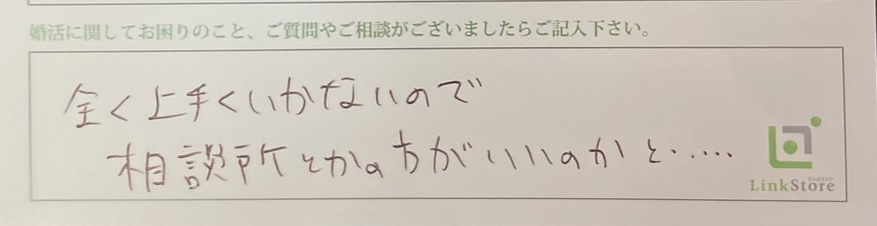 婚活に関してお困りのこと、ご質問やご相談がございましたらご記入下さい。
全く上手くいかないので
相談所とかの方がいいのかと……
LinkStore